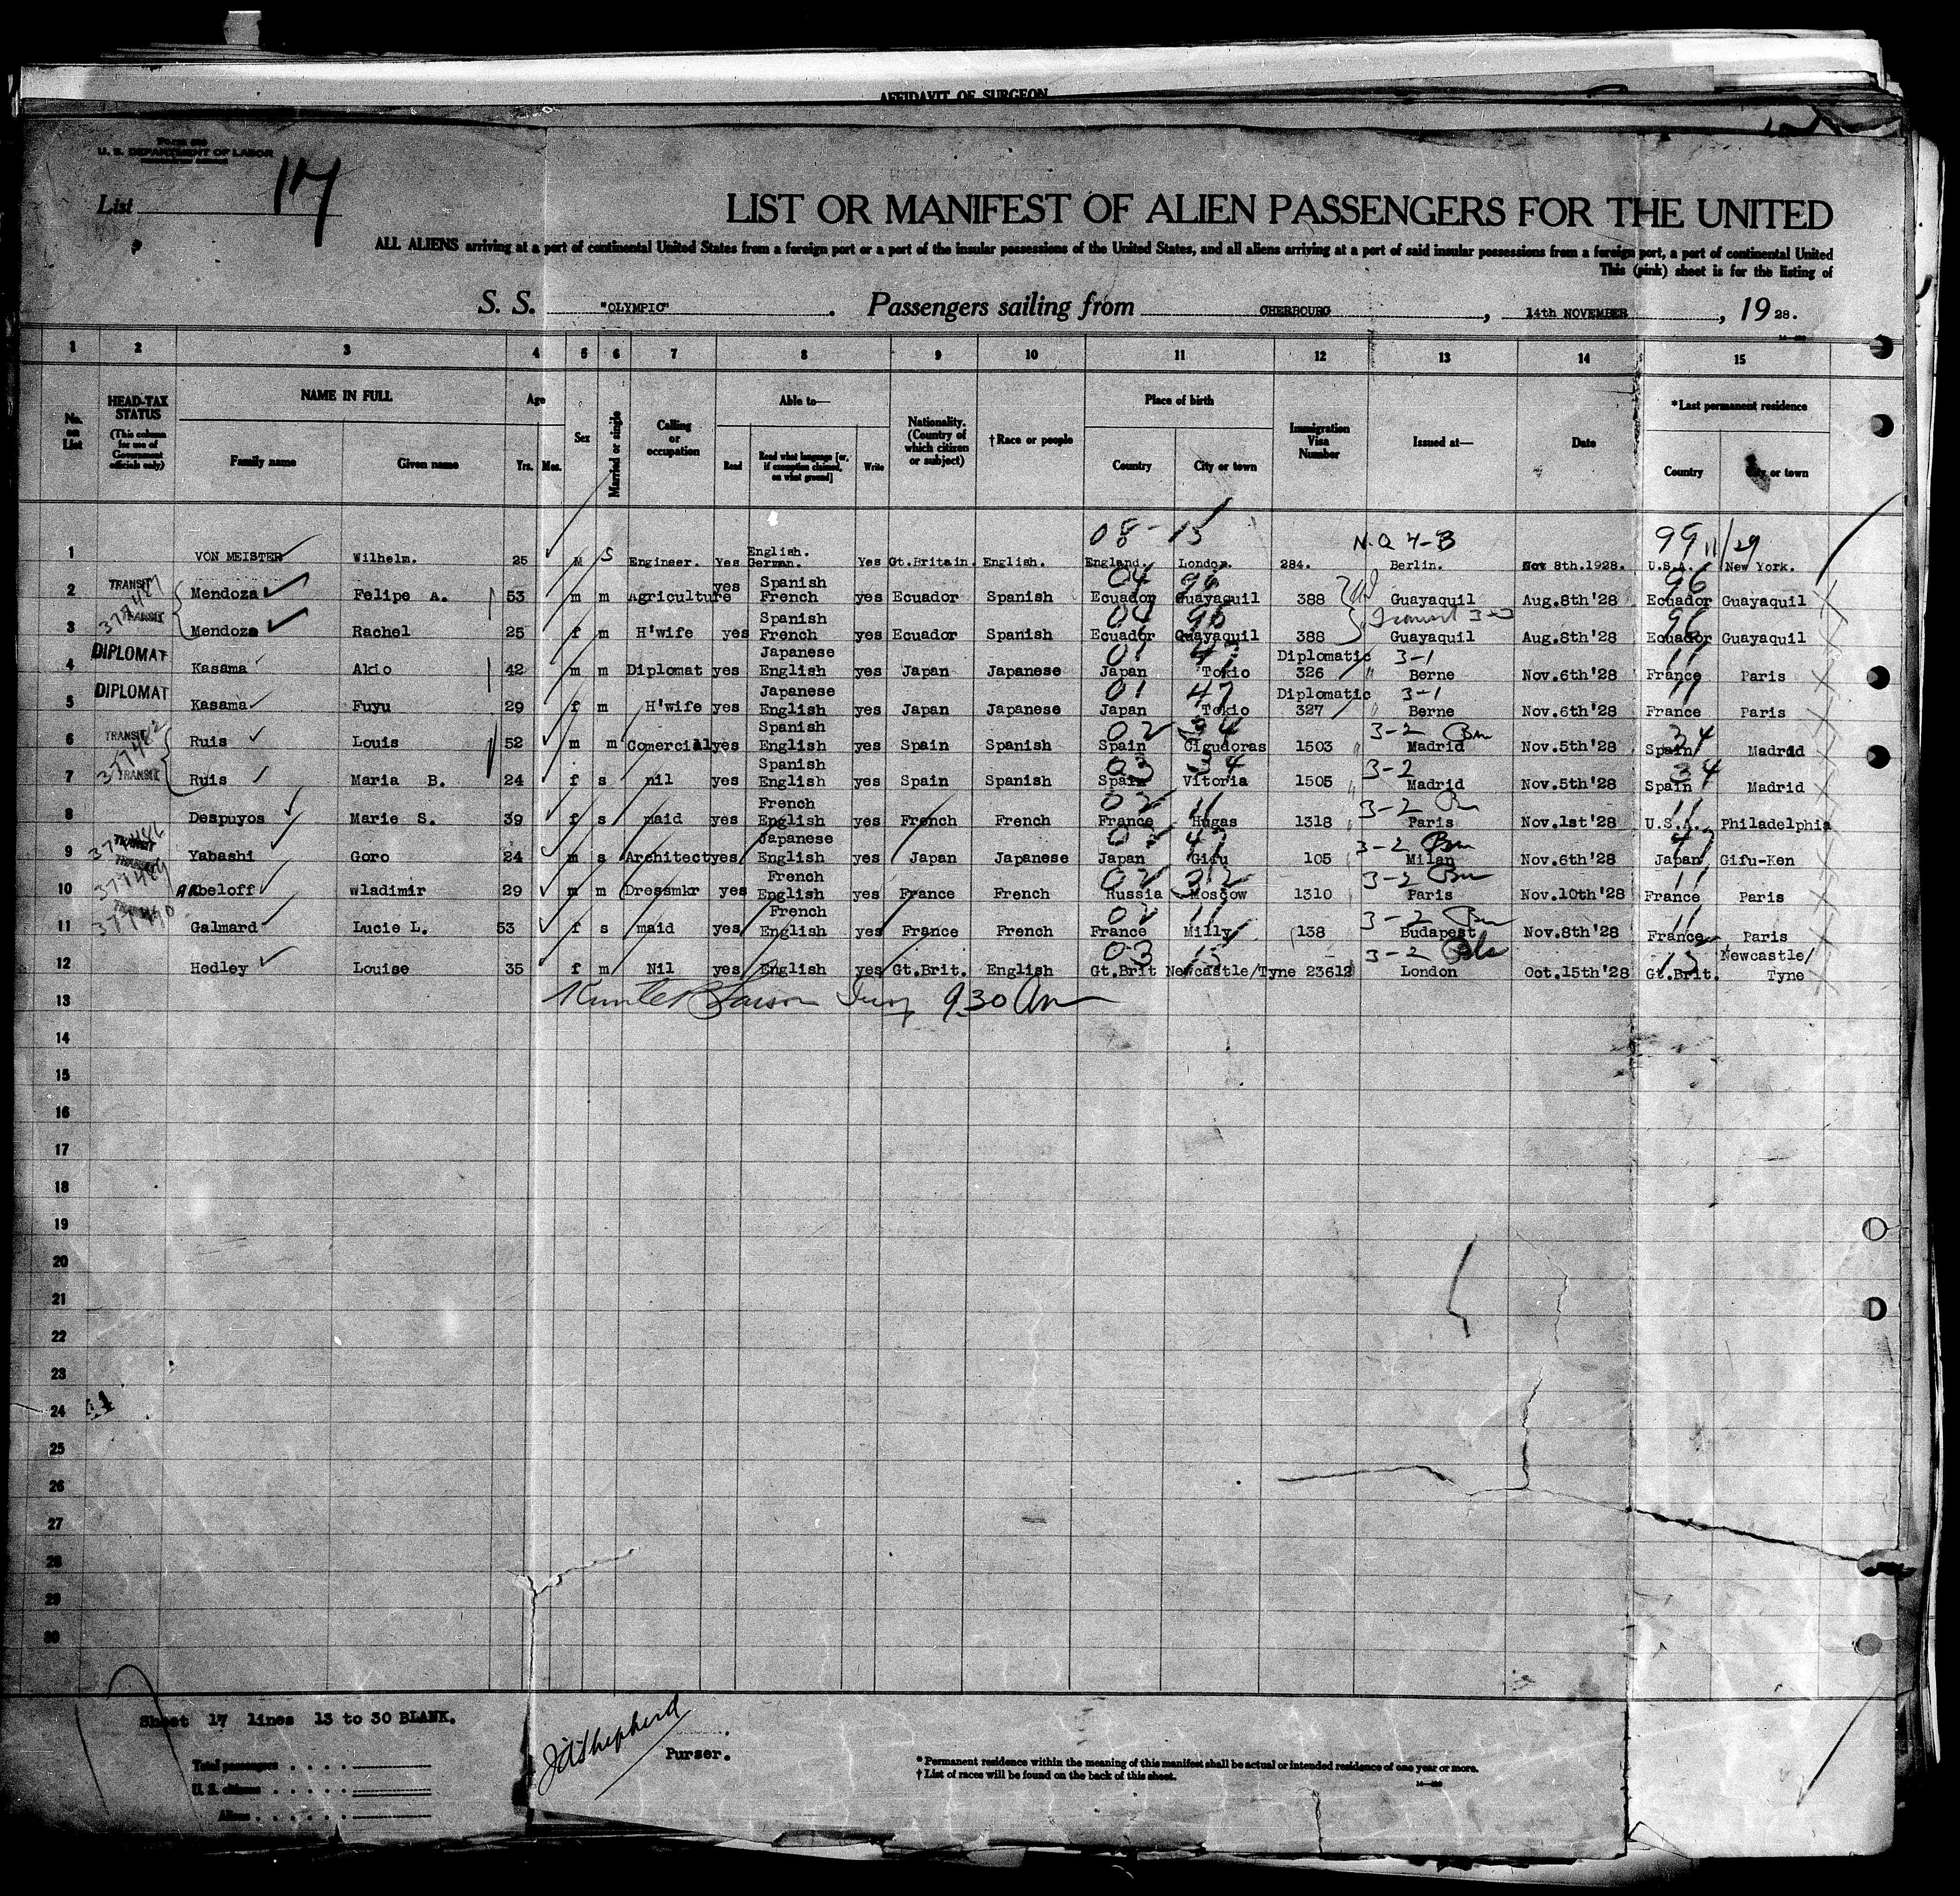 AFFIDAVIT OF SURGEON
U. S. DEPARTMENT OF LABOR
List 17
LIST OR MANIFEST OF ALIEN PASSENGERS FOR THE UNITED
ALL ALIENS arriving at a port of continental United States from a foreign port or a port of the insular possessions of the United States, and all aliens arriving at a port of said insular possessions from a foreign port, a port of continental United
This (pink) sheet is for the listing of
S. S. "OLYMPIC". Passengers sailing from CHERBOURG, 14th NOVEMBER, 1928.
1 2 3 4 5 6 7 8 9 10 11 12 13 14 15
No. on List
HEAD-TAX STATUS (This column for use of Government officials only)
NAME IN FULL
Family name Given name
Age
Yrs. Mos.
Sex
Married or single
Calling or occupation
Able to—
Read
Read what language [or, if exemption claimed, on what ground]
Write
Nationality. (Country of which citizen or subject)
†Race or people
Place of birth
Country City or town
Immigration Visa Number
Issued at—
Date
*Last permanent residence
Country City or town
08-15 N.Q 4-3 99 11/29
1 VON MEISTER Wilhelm. 25 M S Engineer. Yes English. German. Yes Gt.Britain. English. England. London. 284. Berlin. Nov 8th.1928. U.S.A. New York.
04 96 96
2 TRANSIT Mendoza Felipe A. 53 m m Agriculture yes Spanish French yes Ecuador Spanish Ecuador Guayaquil 388 Guayaquil Aug.8th'28 Ecuador Guayaquil
377487
04 96 Transit 3-3 96
3 TRANSIT Mendoza Rachel 25 f m H'wife yes Spanish French yes Ecuador Spanish Ecuador Guayaquil 388 Guayaquil Aug.8th'28 Ecuador Guayaquil
01 47 3-1 11
4 DIPLOMAT Kasama Akio 42 m m Diplomat yes Japanese English yes Japan Japanese Japan Tokio Diplomatic 326 Berne Nov.6th'28 France Paris
01 47 3-1 11
5 DIPLOMAT Kasama Fuyu 29 f m H'wife yes Japanese English yes Japan Japanese Japan Tokio Diplomatic 327 Berne Nov.6th'28 France Paris
02 34 3-2 34
6 TRANSIT Ruis Louis 52 m m Comercial yes Spanish English yes Spain Spanish Spain CIgudoras 1503 Madrid Nov.5th'28 Spain Madrid
03 34 3-2 34
7 TRANSIT Ruis Maria B. 24 f s nil yes Spanish English yes Spain Spanish Spain Vitoria 1505 Madrid Nov.5th'28 Spain Madrid
02 11 3-2 11
8 Despuyos Marie S. 39 f s maid yes French English yes French French France Hugas 1318 Paris Nov.1st'28 U.S.A. Philadelphia
47 3-2 47
9 TRANSIT Yabashi Goro 24 m s Architect yes Japanese English yes Japan Japanese Japan Gifu 105 Milan Nov.6th'28 Japan Gifu-Ken
02 32 3-2 11
10 Wladimir 29 m m Dressmkr yes French English yes France French Russia Moscow 1310 Paris Nov.10th'28 France Paris
377490
02 11 3-2 11
11 Galmard Lucie L. 53 f s maid yes French English yes France French France Milly 138 Budapest Nov.8th'28 France Paris
03 15 3-2 15
12 Hedley Louise 35 f m Nil yes English yes Gt.Brit. English Gt.Brit Newcastle/Tyne 23612 London Oct.15th'28 Gt.Brit. Newcastle/Tyne
13 9.30 Am
14
15
16
17
18
19
20
21
22
23
24
25
26
27
28
29
30
Sheet 17 lines 13 to 30 BLANK.
Total passengers
U. S. citizens
Aliens
J A Shepherd
Purser.
* Permanent residence within the meaning of this manifest shall be actual or intended residence of one year or more.
† List of races will be found on the back of this sheet.